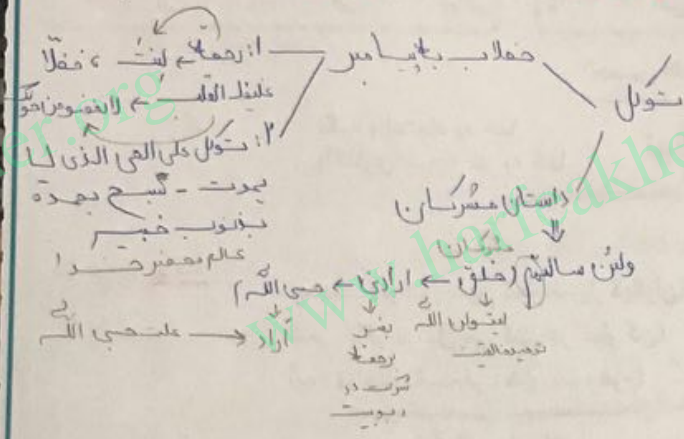 توکل
خطاب به پیامبر
۱: رحمة ← لنت ، فظّا
غلیظ القلب ← لانفضوا من حولک
۲: توکل علی الحی الذی لا
یموت - سبح بحمده
بذنوب خبیر
عالم محضر خدا
داستان مشرکان
مشرکان
ولئن سالتهم (خلق ← ارادنی ← حسبی الله)
لیقولن الله
توحید خالقیت
بضر
برحمة
شرک در
ربوبیت
آزاد ← علت حسبی الله
www.haricakher.org